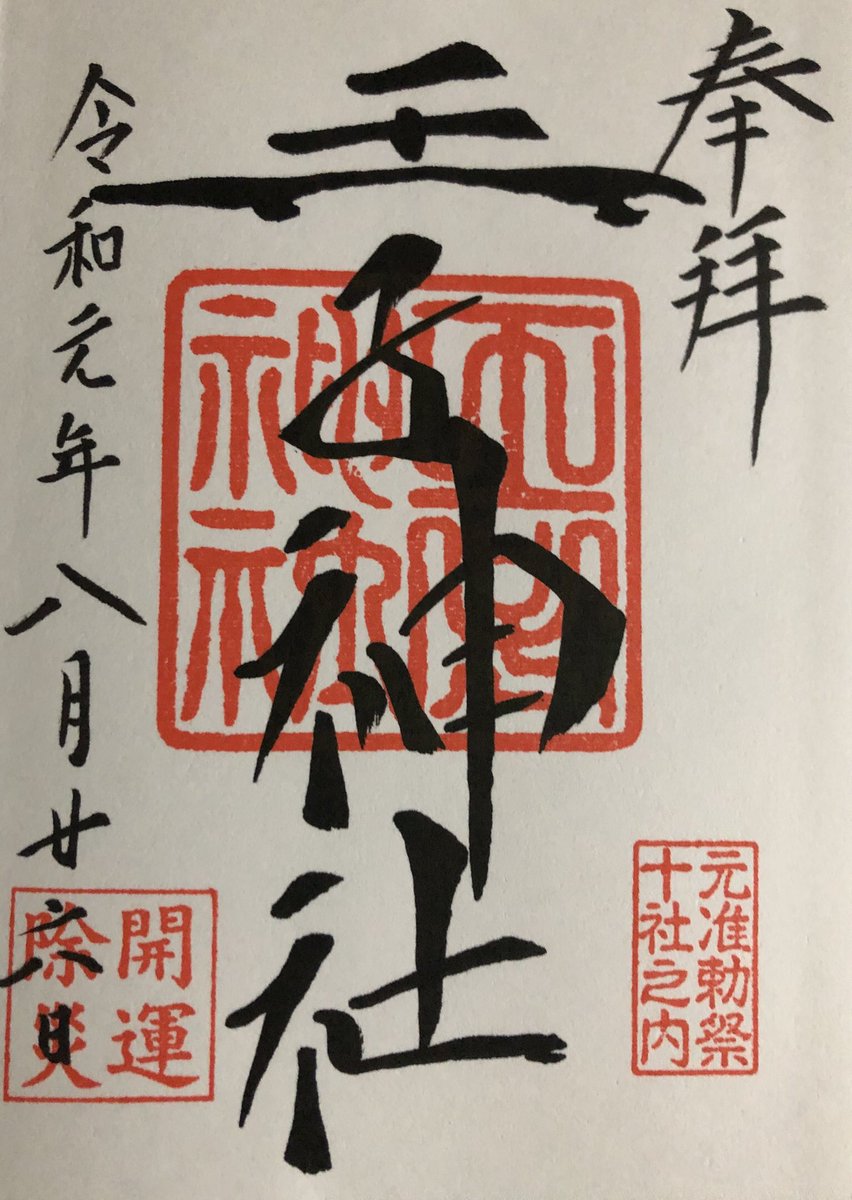 奉拝
王子神社
令和元年八月廿六日
元准勅祭
十社之内
開運
除災